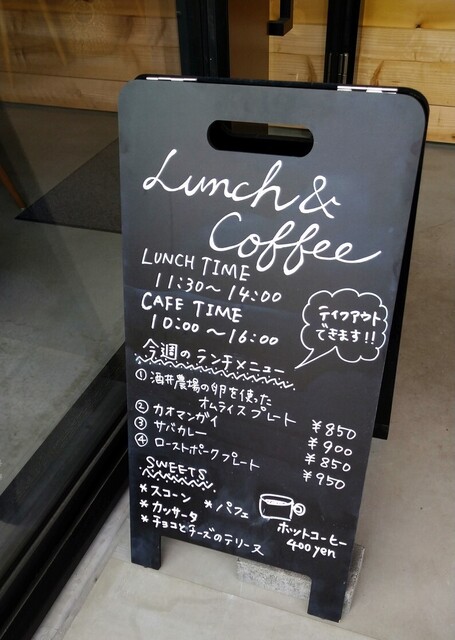 Lunch &
Coffee
LUNCH TIME
11:30〜14:00
CAFE TIME
10:00〜16:00
テイクアウト
できます!!
今週のランチメニュー
① 酒井農場の卵を使った
オムライスプレート ¥850
② カオマンガイ ¥900
③ サバカレー ¥850
④ ローストポークプレート ¥950
SWEETS
*スコーン *パフェ
*カッサータ
*チョコとチーズのテリーヌ
ホットコーヒー
400yen